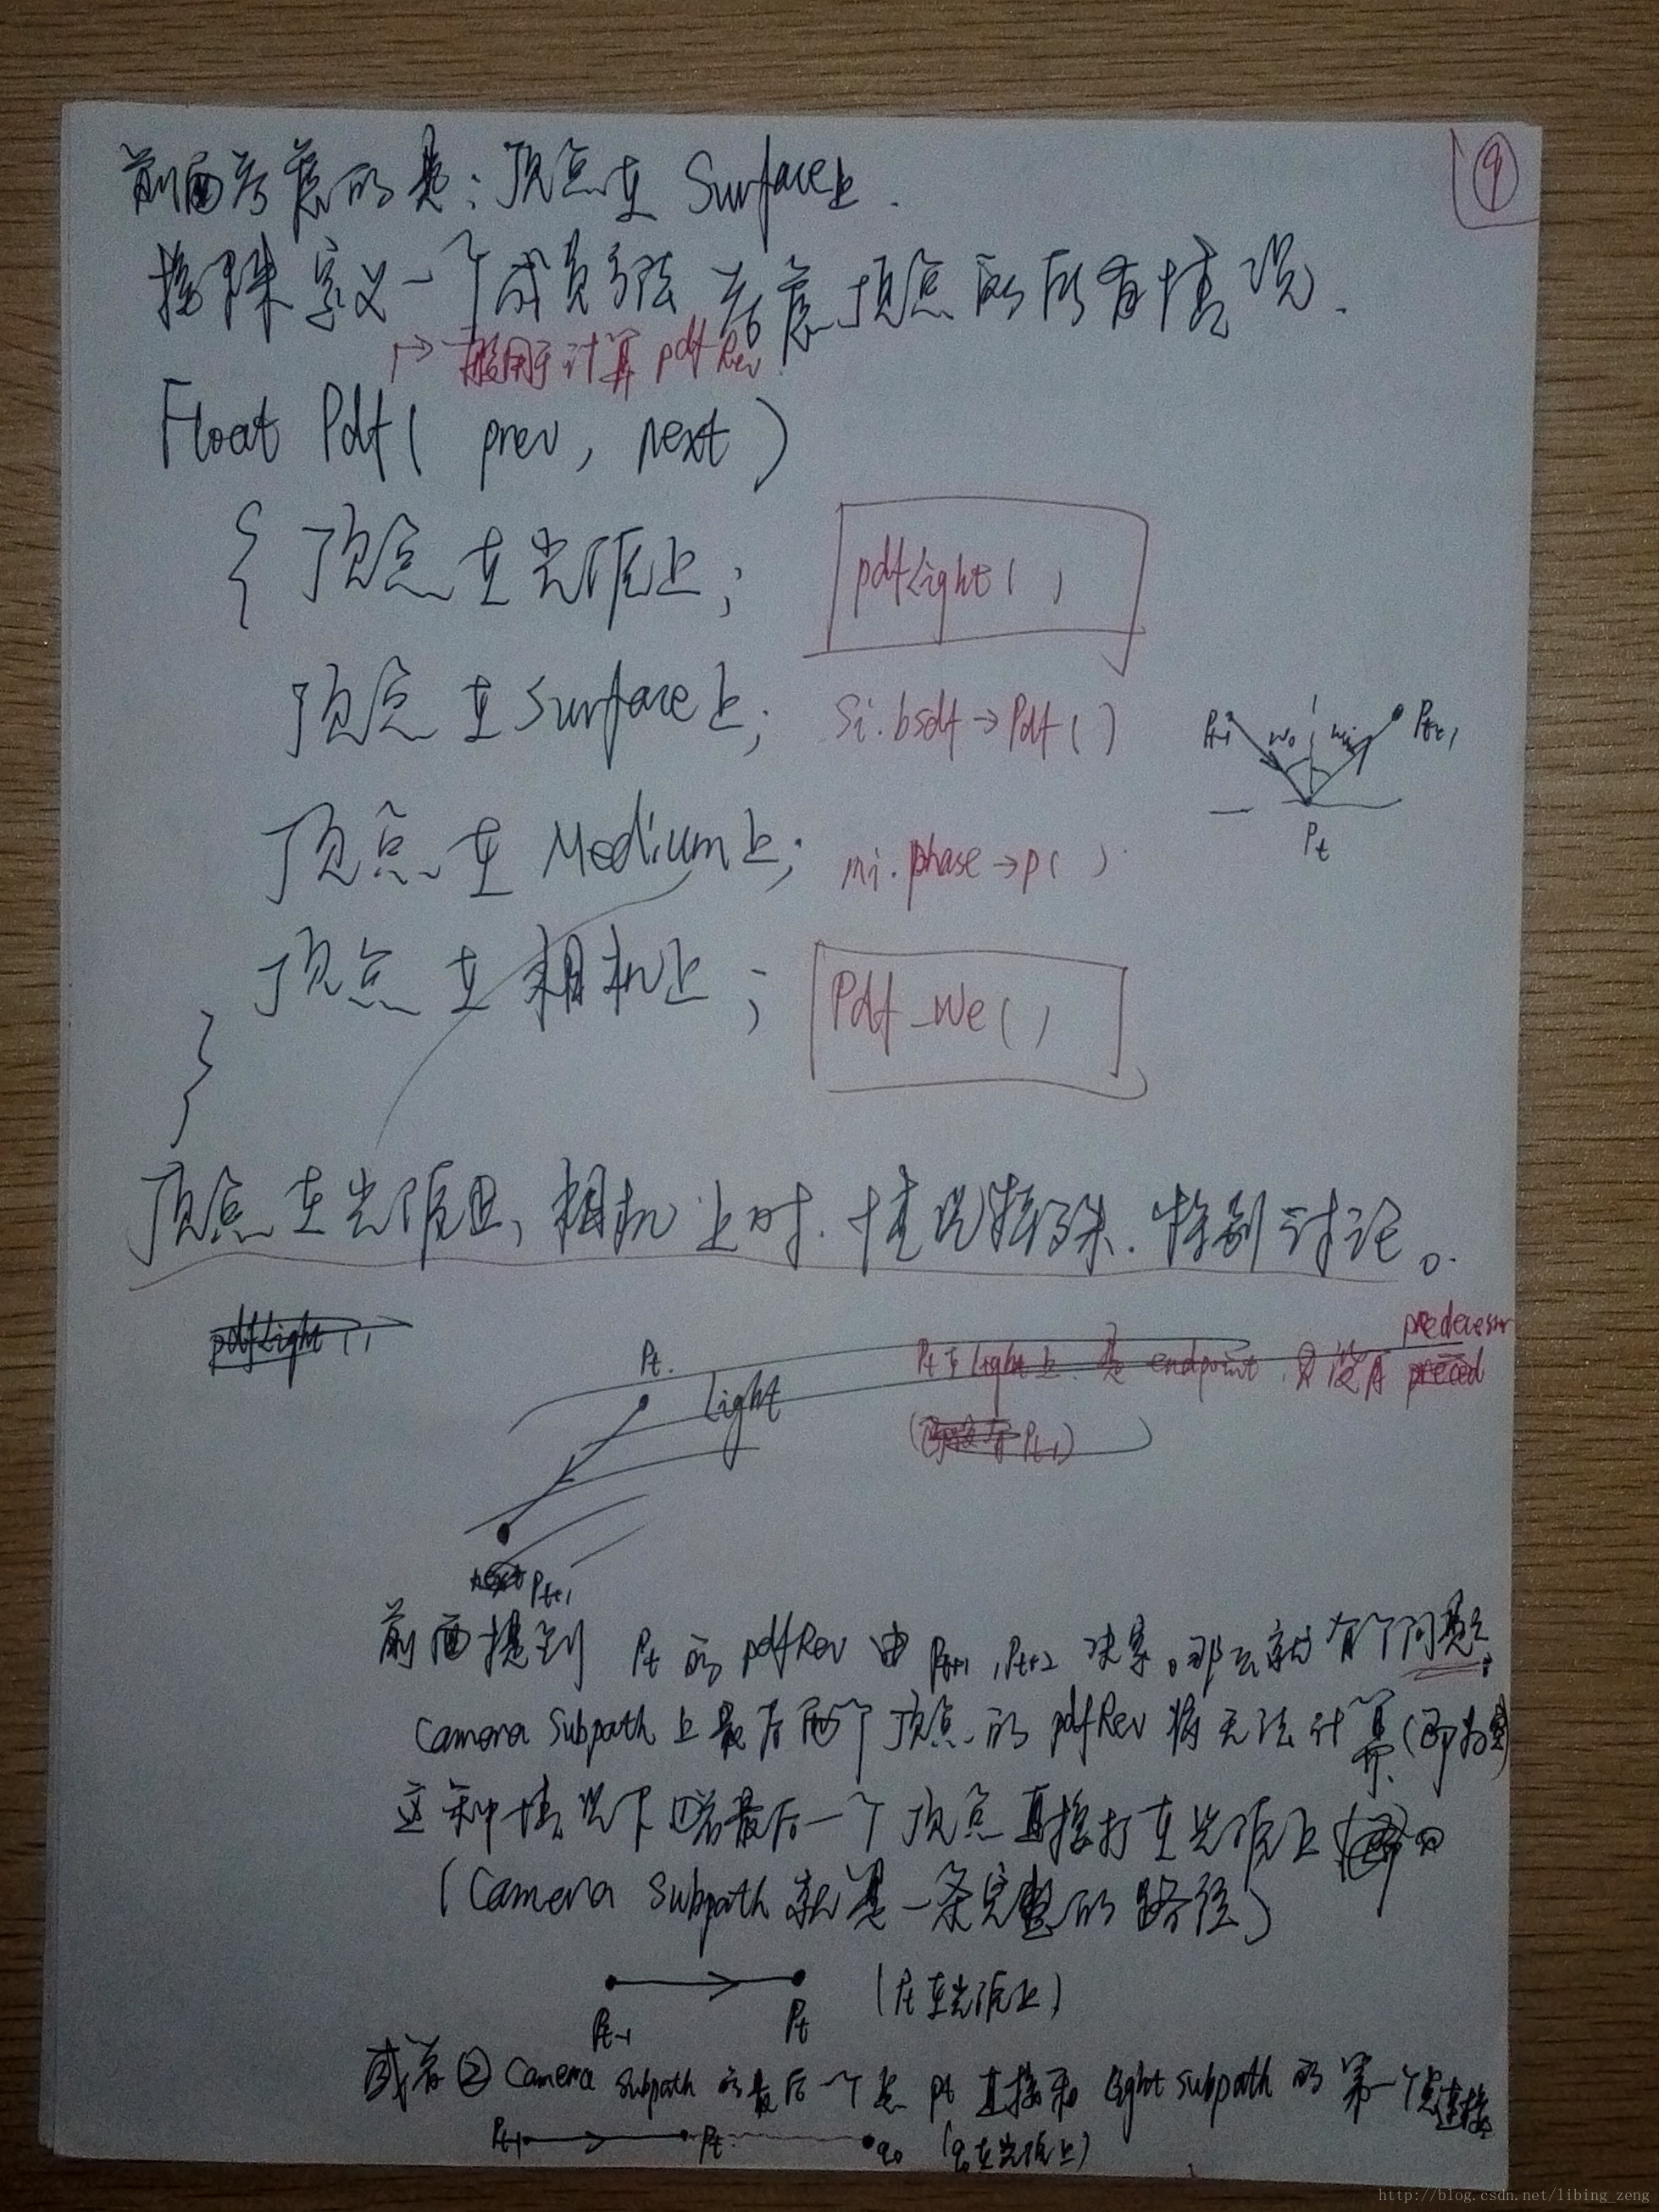 ⑨
前面考虑的是：顶点在 Surface上.
接下来定义一个成员方法 考虑顶点的所有情况.
↦ 一般用于计算 pdfRev
Float Pdf( prev, next )
{ 顶点在光源上; pdfLight( )
顶点在Surface上; si.bsdf→Pdf( )
Pt-1 wo wi Pt+1
Pt
顶点在Medium上; mi.phase→p( )
顶点在相机上; Pdf_We( )
}
顶点在光源上、相机上时.情况特殊.特别讨论。
pdfLight( )
predecessor
Pt. Light Pt于Light上.是 endpoint. 只没有 preced
(即没有Pt-1)
next Pt+1
前面提到 Pt的pdfRev由Pt+1,Pt+2决定。那么就有个问题:
Camera Subpath上最后两个顶点的pdfRev将无法计算(即为
这种情况下 ①若最后一个顶点直接打在光源上
(Camera Subpath就是一条完整的路径)
Pt-1 Pt (Pt在光源上)
或者②Camera subpath的最后一个点 pt直接和Light subpath的第一个点连接
Pt-1 Pt q0 (q0在光源上)
http://blog.csdn.net/libing_zeng